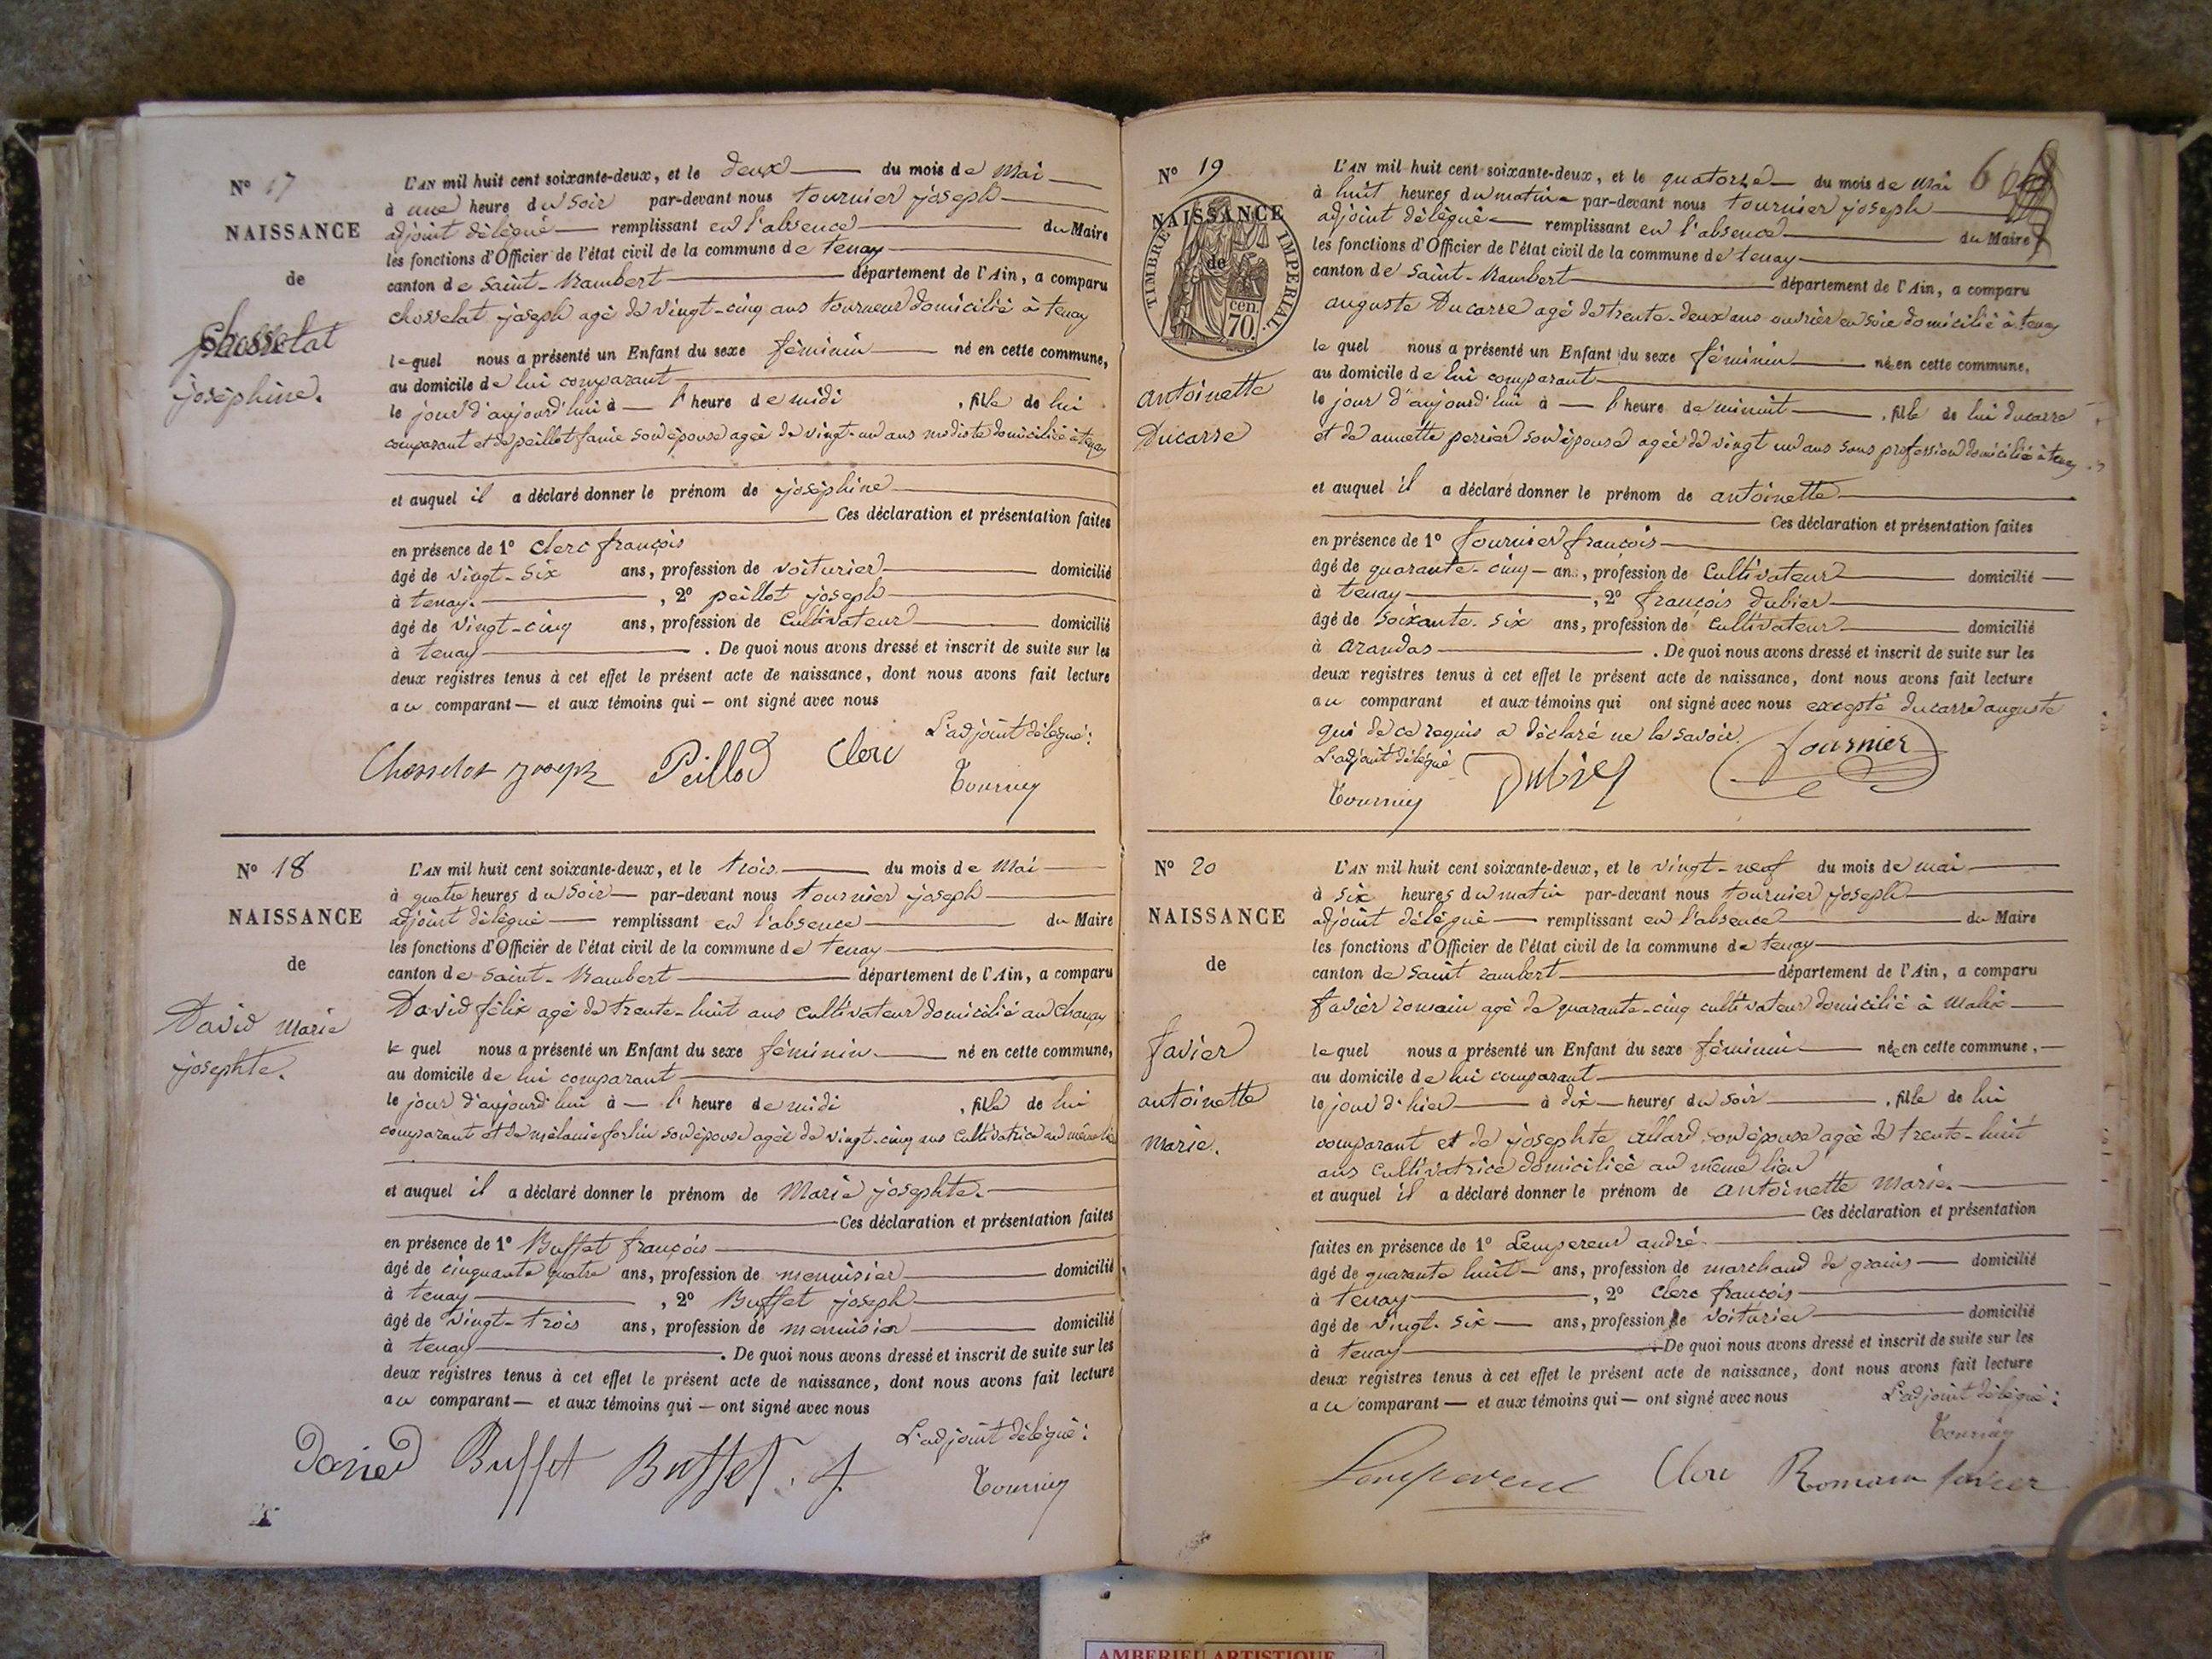 N° 17
NAISSANCE
de
Chosselat
joséphine.
L'AN mil huit cent soixante-deux, et le deux du mois de Mai
à une heure du Soir par-devant nous tournier joseph
adjoint délégué remplissant en l'absence du Maire
les fonctions d'Officier de l'état civil de la commune de tenay
canton de Saint-Rambert département de l'Ain, a comparu
chosselat joseph agé de vingt-cinq ans tourneur domicilié à tenay
lequel nous a présenté un Enfant du sexe féminin né en cette commune,
au domicile de lui comparant
le jour d'aujourd'hui à l'heure de midi, fille de lui
comparant et de peillot fanie son épouse agée de vingt-un ans modiste domiciliée à tenay
et auquel il a déclaré donner le prénom de joséphine
Ces déclaration et présentation faites
en présence de 1° clerc françois
âgé de vingt-six ans, profession de voiturier domicilié
à tenay. , 2° peillot joseph
âgé de vingt-cinq ans, profession de Cultivateur domicilié
à tenay . De quoi nous avons dressé et inscrit de suite sur les
deux registres tenus à cet effet le présent acte de naissance, dont nous avons fait lecture
au comparant — et aux témoins qui — ont signé avec nous
L'adjoint délégué:
Chosselat joseph Peillod Clerc Tournier
N° 18
NAISSANCE
de
David Marie
josephte.
L'AN mil huit cent soixante-deux, et le trois du mois de Mai
à quatre heures du Soir par-devant nous tournier joseph
adjoint délégué remplissant en l'absence du Maire
les fonctions d'Officier de l'état civil de la commune de tenay
canton de Saint-Rambert département de l'Ain, a comparu
David félix agé de trente-huit ans Cultivateur domicilié au
le quel nous a présenté un Enfant du sexe féminin né en cette commune,
au domicile de lui comparant
le jour d'aujourd'hui à l'heure de midi, fille de lui
comparant et de mélanie son épouse agée de vingt-cinq ans Cultivatrice au même lieu
et auquel il a déclaré donner le prénom de Marie josephte.
Ces déclaration et présentation faites
en présence de 1° Buffet françois
âgé de cinquante quatre ans, profession de menuisier domicilié
à tenay , 2° Buffet joseph
âgé de vingt-trois ans, profession de menuisier domicilié
à tenay . De quoi nous avons dressé et inscrit de suite sur les
deux registres tenus à cet effet le présent acte de naissance, dont nous avons fait lecture
au comparant — et aux témoins qui — ont signé avec nous
L'adjoint délégué:
David Buffet Buffet. f Tournier
N° 19
NAISSANCE
de
TIMBRE IMPERIAL.
70 cen.
antoinette
Ducarre
L'AN mil huit cent soixante-deux, et le quatorze du mois de Mai 6
à huit heures du matin par-devant nous tournier joseph
adjoint délégué remplissant en l'absence du Maire
les fonctions d'Officier de l'état civil de la commune de tenay
canton de Saint-Rambert département de l'Ain, a comparu
auguste Ducarre agé de trente-deux ans ouvrier en soie domicilié à tenay
le quel nous a présenté un Enfant du sexe féminin née en cette commune,
au domicile de lui comparant
le jour d'aujourd'hui à l'heure de minuit, fille de lui ducarre
et de annette perrier son épouse agée de vingt un ans sans profession domiciliée à tenay
et auquel il a déclaré donner le prénom de antoinette
Ces déclaration et présentation faites
en présence de 1° fournier françois
âgé de quarante-cinq ans, profession de Cultivateur domicilié
à tenay , 2° françois dubier
âgé de soixante-six ans, profession de Cultivateur domicilié
à arandas . De quoi nous avons dressé et inscrit de suite sur les
deux registres tenus à cet effet le présent acte de naissance, dont nous avons fait lecture
au comparant et aux témoins qui ont signé avec nous excepté ducarre auguste
qui de ce requis a déclaré ne le savoir.
L'adjoint délégué
Tournier Fournier
N° 20
NAISSANCE
de
favier
antoinette
marie.
L'AN mil huit cent soixante-deux, et le vingt-neuf du mois de mai
à six heures du matin par-devant nous tournier joseph
adjoint délégué remplissant en l'absence du Maire
les fonctions d'Officier de l'état civil de la commune de tenay
canton de Saint rambert département de l'Ain, a comparu
favier romain agé de quarante-cinq cultivateur domicilié à Malix
lequel nous a présenté un Enfant du sexe féminin née en cette commune,
au domicile de lui comparant
le jour d'hier à dix heures du soir, fille de lui
comparant et de josephte allard son épouse agée de trente-huit
ans cultivatrice domiciliée au même lieu
et auquel il a déclaré donner le prénom de antoinette marie.
Ces déclaration et présentation
faites en présence de 1° Lempereur andré
âgé de quarante huit ans, profession de marchand de grains domicilié
à tenay , 2° clerc françois
âgé de vingt-six ans, profession de voiturier domicilié
à tenay De quoi nous avons dressé et inscrit de suite sur les
deux registres tenus à cet effet le présent acte de naissance, dont nous avons fait lecture
au comparant — et aux témoins qui — ont signé avec nous L'adjoint délégué:
Tournier
Lempereur Clerc Romain favier
AMBERIEU ARTISTIQUE